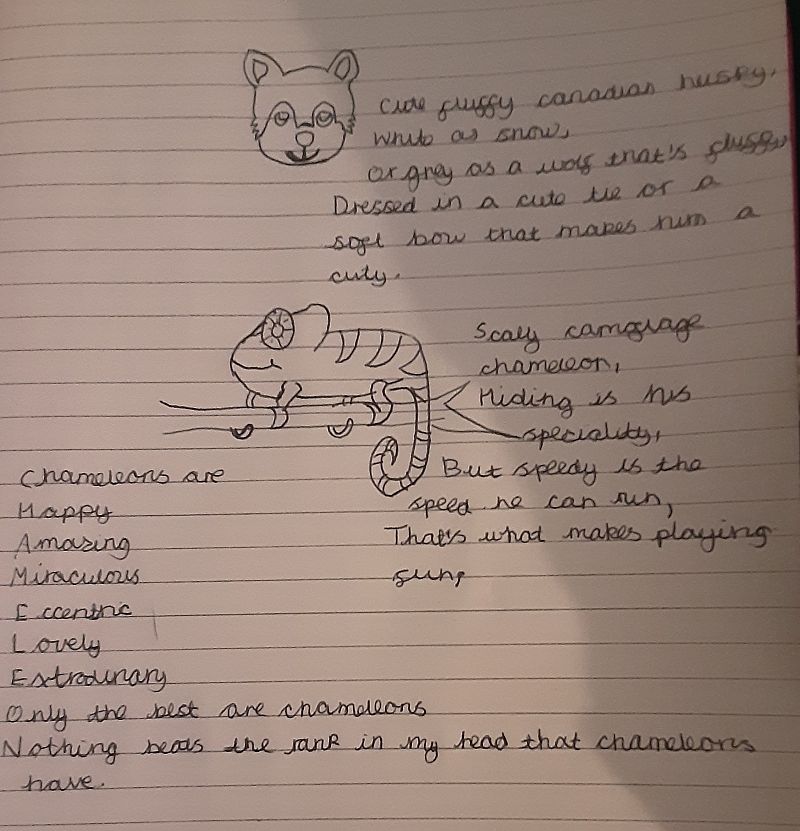 Cute fluffy canadian husky,
white as snow,
Or grey as a wolf that's fluffy,
Dressed in a cute tie or a
soft bow that makes him a
cuty.
Scaly camoflage
chameleon,
Hiding is his
speciality,
But speedy is the
speed he can run,
That's what makes playing
fun,
Chameleons are
Happy
Amazing
Miraculous
Eccentric
Lovely
Extrodinary
Only the best are chameleons
Nothing beats the rank in my head that chameleons
have.